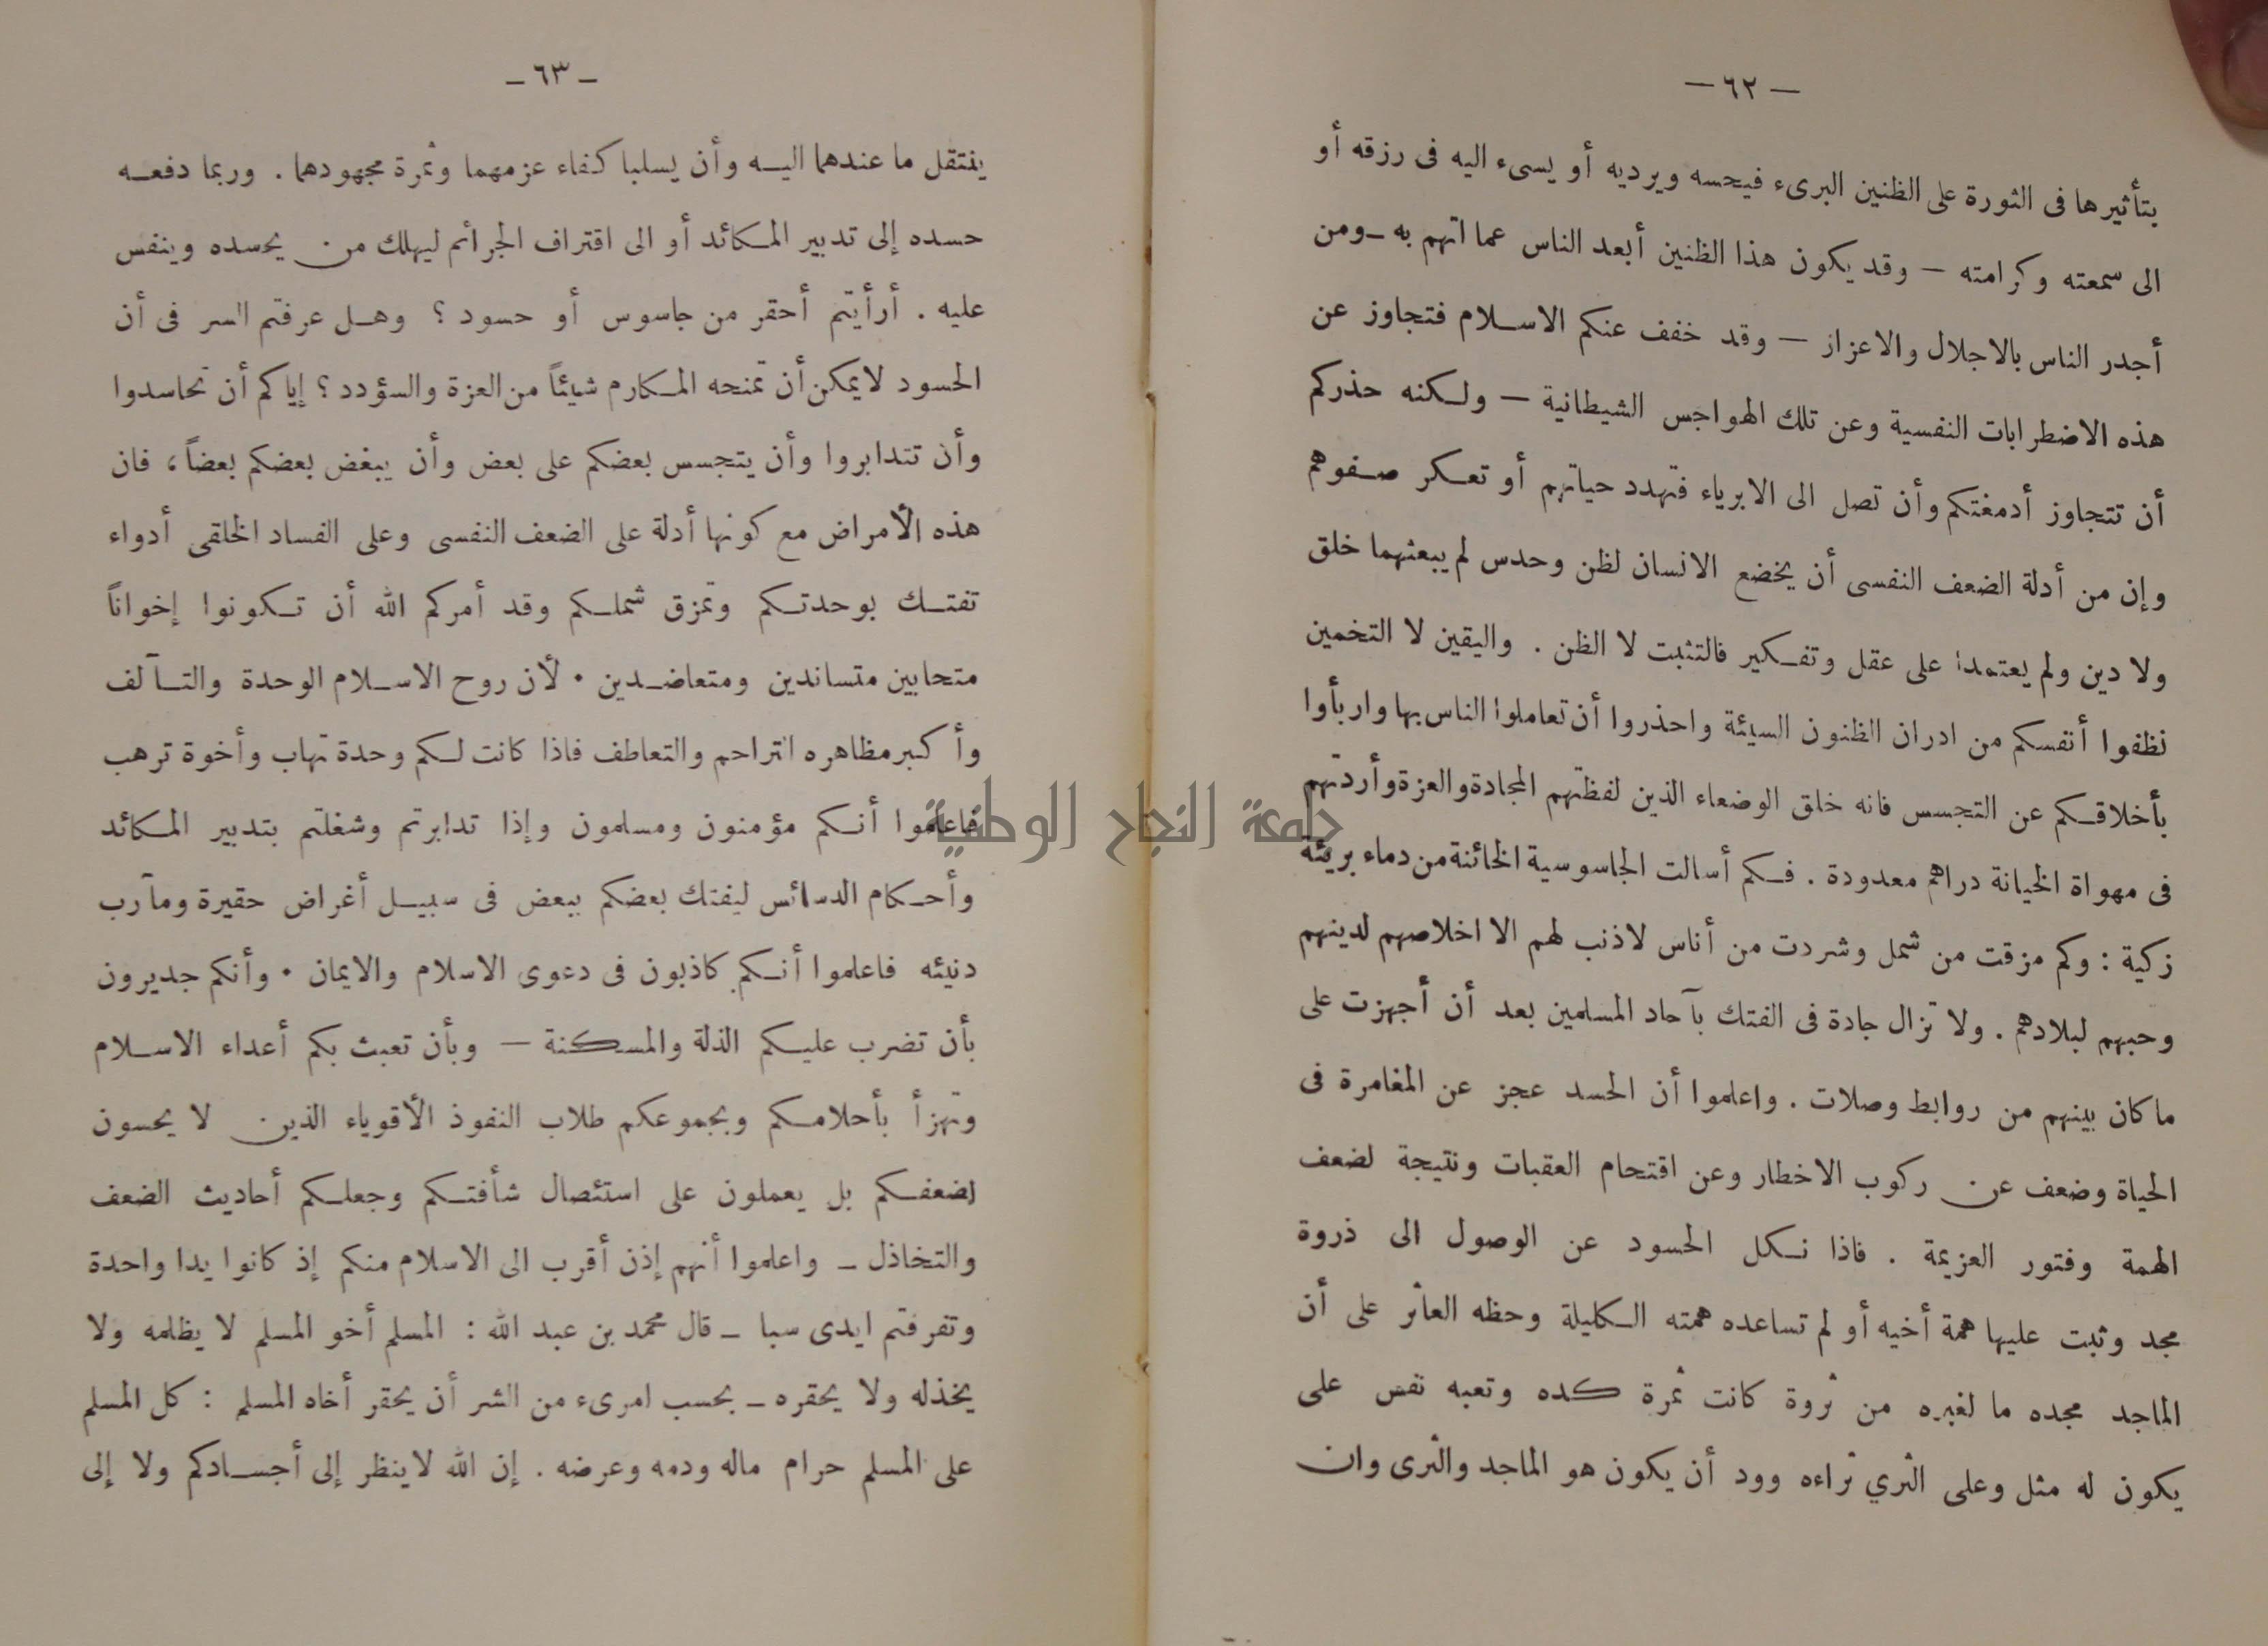 — ٦٢ —
بتأثيرها فى الثورة على الظنين البرىء فيحسه ويرديه أو يسىء اليه فى رزقه أو
الى سمعته وكرامته — وقد يكون هذا الظنين أبعد الناس عما اتهم به — ومن
أجدر الناس بالاجلال والاعزاز — وقد خفف عنكم الاسلام فتجاوز عن
هذه الاضطرابات النفسية وعن تلك الهواجس الشيطانية — ولكنه حذركم
أن تتجاوز أدمغتكم وأن تصل الى الابرياء فتهدد حياتهم أو تعكر صفوهم
وإن من أدلة الضعف النفسى أن يخضع الانسان لظن وحدس لم يبعثهما خلق
ولا دين ولم يعتمدا على عقل وتفكير فالتثبت لا الظن . واليقين لا التخمين
نظفوا أنفسكم من ادران الظنون السيئة واحذروا أن تعاملوا الناس بها واربأوا
بأخلاقكم عن التجسس فانه خلق الوضعاء الذين لفظتهم المجادة والعزة وأردتهم
فى مهواة الخيانة دراهم معدودة . فكم أسالت الجاسوسية الخائنة من دماء بريئة
زكية : وكم مزقت من شمل وشردت من أناس لاذنب لهم الا اخلاصهم لدينهم
وحبهم لبلادهم . ولا تزال جادة فى الفتك بآحاد المسلمين بعد أن أجهزت على
ما كان بينهم من روابط وصلات . واعلموا أن الحسد عجز عن المغامرة فى
الحياة وضعف عن ركوب الاخطار وعن اقتحام العقبات ونتيجة لضعف
الهمة وفتور العزيمة . فاذا نكل الحسود عن الوصول الى ذروة
مجد وثبت عليها همة أخيه أو لم تساعده همته الكليلة وحظه العاثر على أن
يكون له مثل ما لغيره من ثروة كانت ثمرة كده وتعبه نفس على
الماجد مجده وعلى الثري ثراءه وود أن يكون هو الماجد والثرى وان
— ٦٣ —
ينتقل ما عندهما اليه وأن يسلبا كفاء عزمهما وثمرة مجهودهما . وربما دفعه
حسده إلى تدبير المكائد أو الى اقتراف الجرائم ليهلك من يحسده وينفس
عليه . أرأيتم أحقر من جاسوس أو حسود ؟ وهل عرفتم السر فى أن
الحسود لا يمكن أن تمنحه المكارم شيئاً من العزة والسؤدد ؟ إياكم أن تحاسدوا
وأن تتدابروا وأن يتجسس بعضكم على بعض وأن يبغض بعضكم بعضاً ، فان
هذه الأمراض مع كونها أدلة على الضعف النفسى وعلى الفساد الخلقى أدواء
تفتك بوحدتكم وتمزق شملكم وقد أمركم الله أن تكونوا إخواناً
متحابين متساندين ومتعاضدين . لأن روح الاسلام الوحدة والتآلف
وأكبر مظاهره التراحم والتعاطف فاذا كانت لكم وحدة تهاب وأخوة ترهب
فاعلموا أنكم مؤمنون ومسلمون وإذا تدابرتم وشغلتم بتدبير المكائد
وأحكام الدسائس ليفتك بعضكم ببعض فى سبيل أغراض حقيرة ومآرب
دنيئه فاعلموا أنكم كاذبون فى دعوى الاسلام والايمان . وأنكم جديرون
بأن تضرب عليكم الذلة والمسكنة — وبأن تعبث بكم أعداء الاسلام
وتهزأ بأحلامكم وبجموعكم طلاب النفوذ الأقوياء الذين لا يحسون
لضعفكم بل يعملون على استئصال شأفتكم وجعلكم أحاديث الضعف
والتخاذل — واعلموا أنهم إذن أقرب الى الاسلام منكم إذ كانوا يدا واحدة
وتفرقتم ايدى سبا — قال محمد بن عبد الله : المسلم أخو المسلم لا يظلمه ولا
يخذله ولا يحقره — بحسب امرىء من الشر أن يحقر أخاه المسلم : كل المسلم
على المسلم حرام ماله ودمه وعرضه . إن الله لا ينظر إلى أجسادكم ولا إلى
جامعة النجاح الوطنية